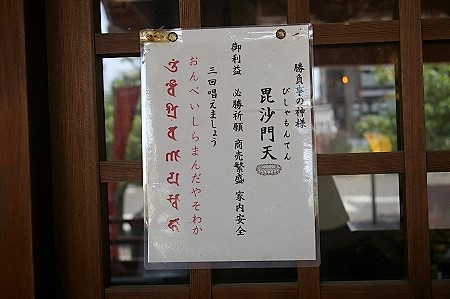 勝負事の神様
びしゃもんてん
毘沙門天
御利益 必勝祈願 商売繁盛 家内安全
三回唱えましょう
おんべいしらまんだやそわか